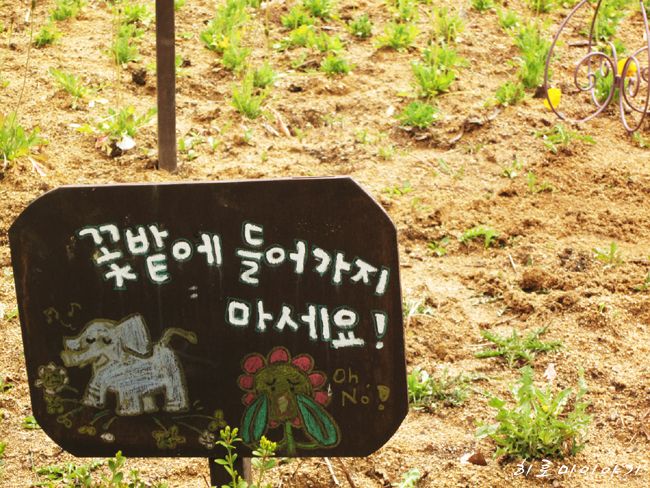 꽃밭에 들어가지
마세요!
Oh
No!
히로이야기